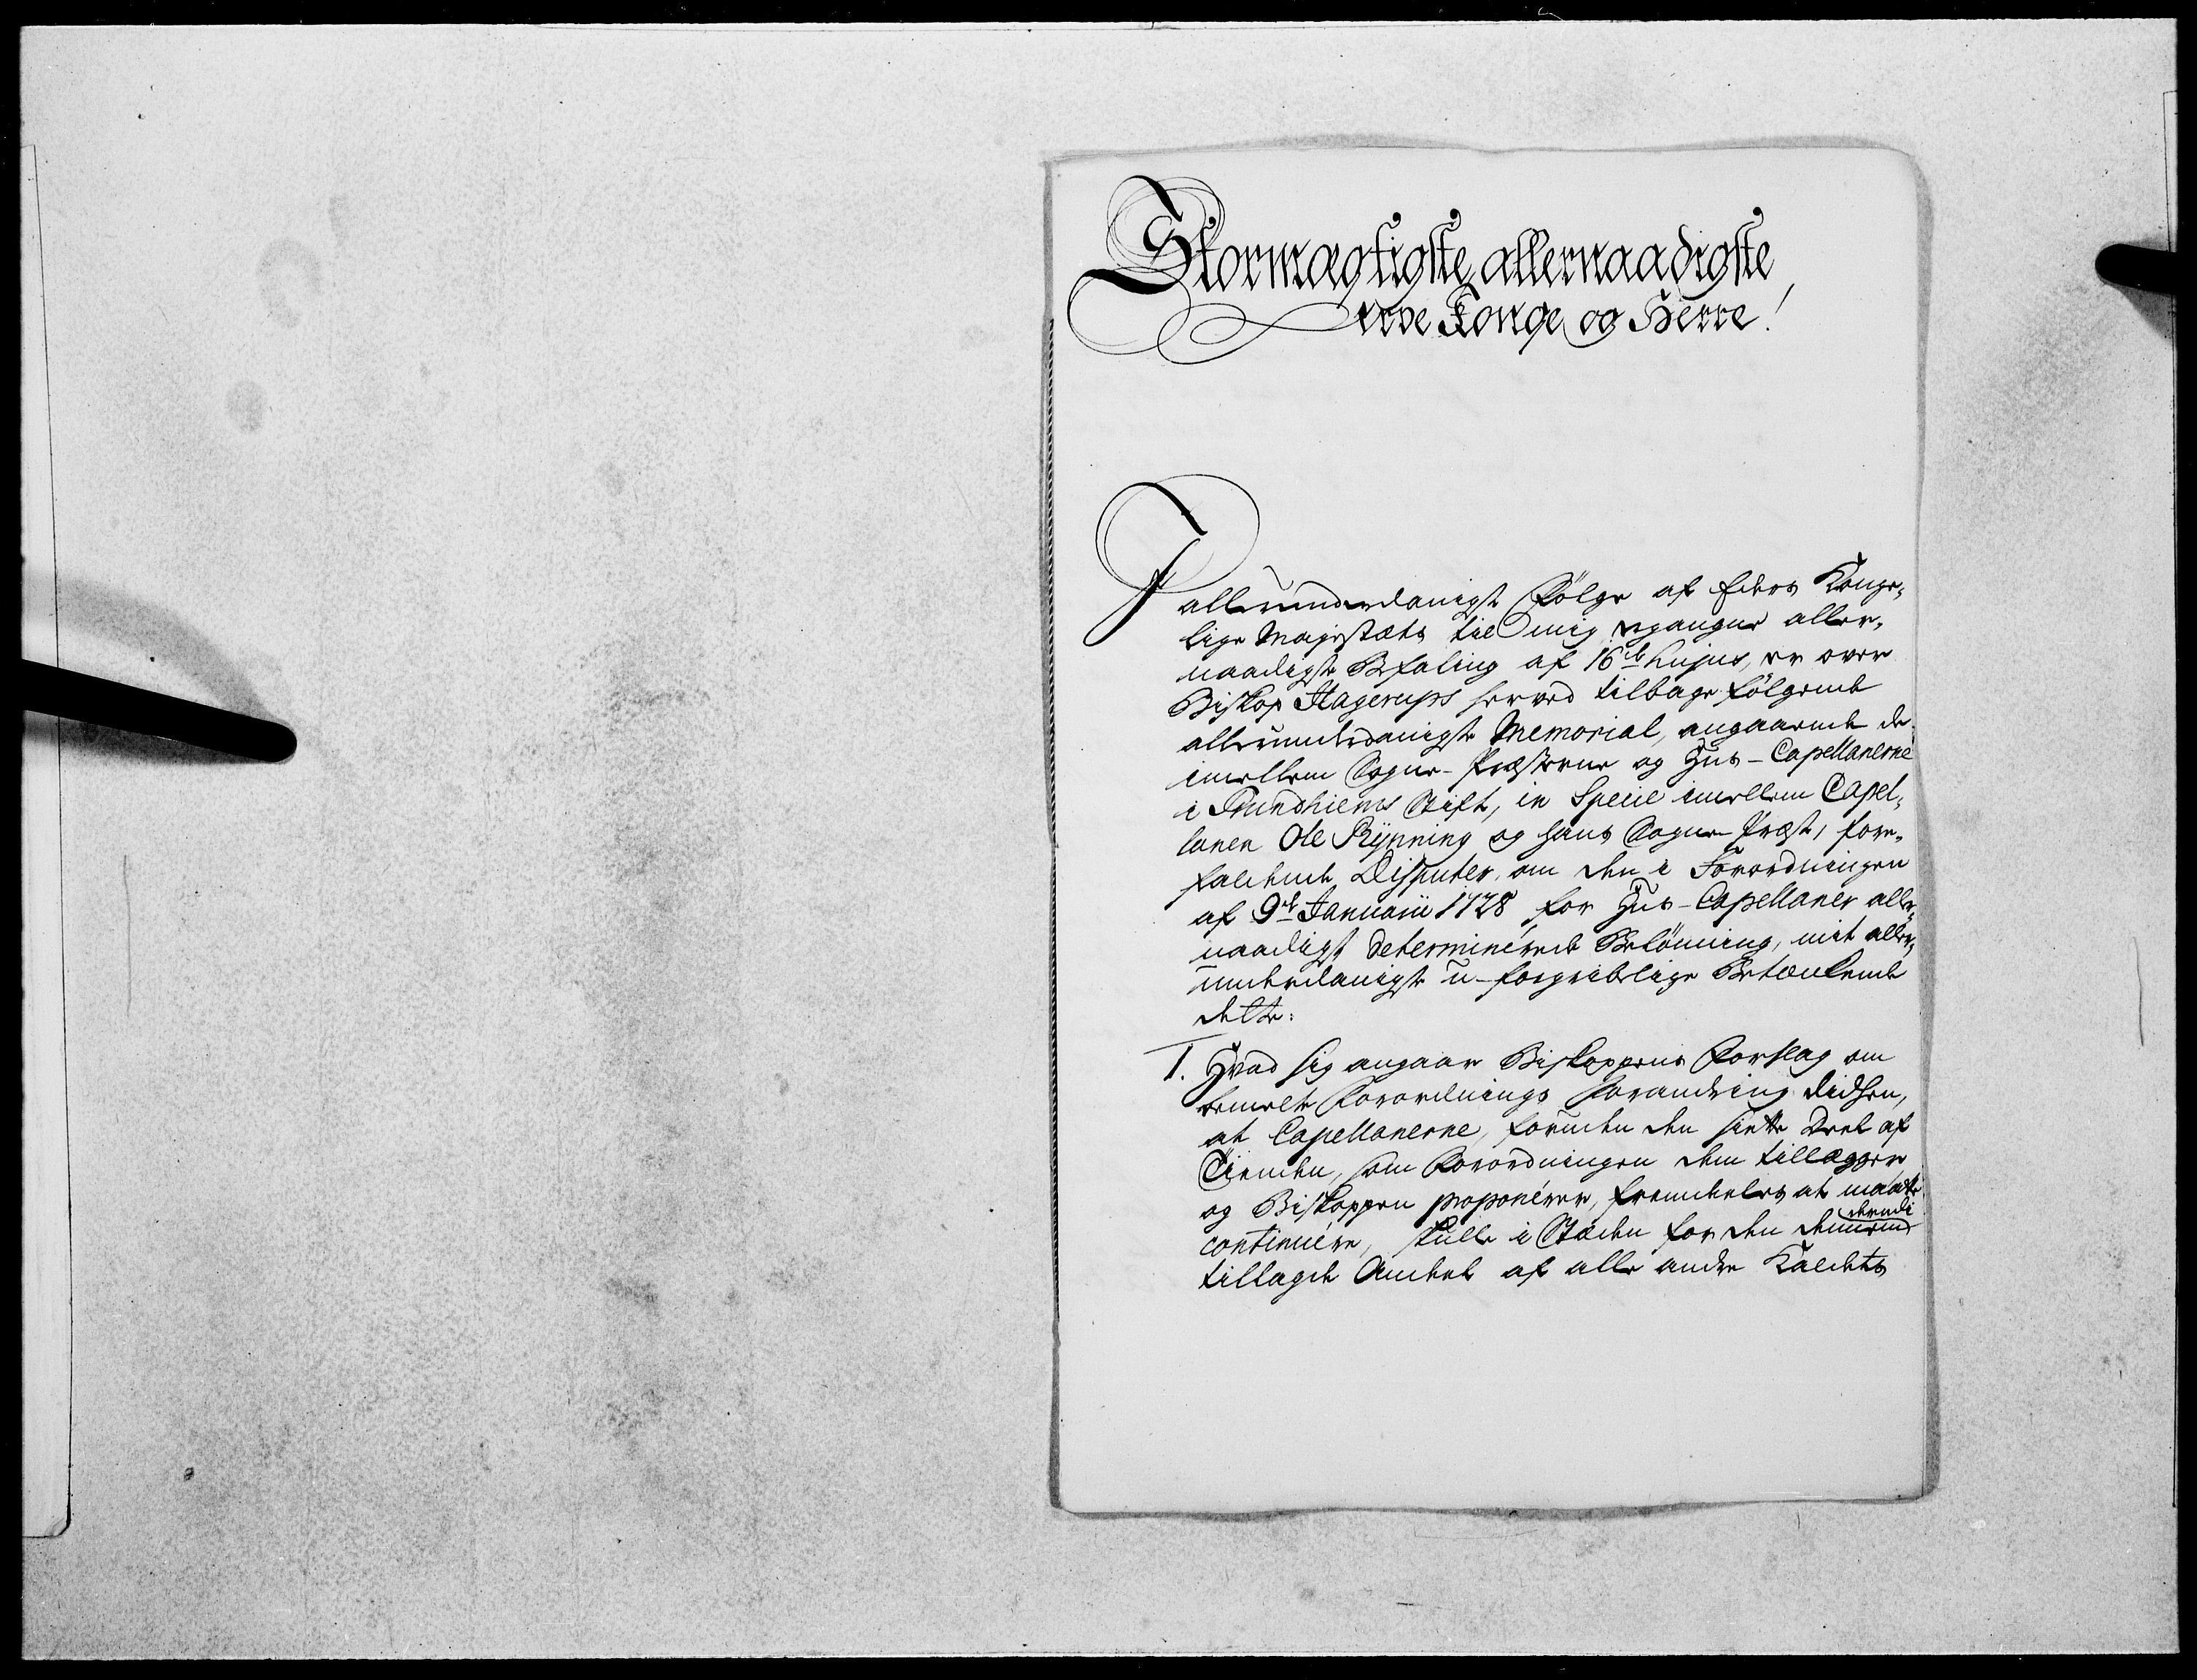 Stormægtigste, allernaadigste
Arve Konge og Herre!
I allerunderdanigst Følge af Eders Konge¬
lige Majestæts til mig ergangne aller¬
naadigste Befaling af 16de hujus, er over
Biskop Hagerups herved tilbage følgende
allerunderdanigste Memorial, angaaende de
imellem Sogne-Præsterne og Huus-Capellanerne
i Trundhiems Stift, in Specie imellem Capel¬
lanen Ole Rÿnning og hans Sogne-Præst, fore¬
faldende Disputer, om den i Forordningen
af 9de Januarii 1728 for Huus-Capellaner aller¬
naadigst determinérede Belönning, mit aller¬
underdanigste u-forgribelige Betænkende
dette:
1. Hvad sig angaar Biskoppens Forslag om
bemelte Forordnings Forandring didhen,
at Capellanerne, foruden den siette Deel af
Tienden, som Forordningen dem tillægger
og Biskoppen proponérer, fremdeeles at maatte
continuére, skulle i Stæden for den dem
derudi
tillagde Andeel af alle andre Kaldets